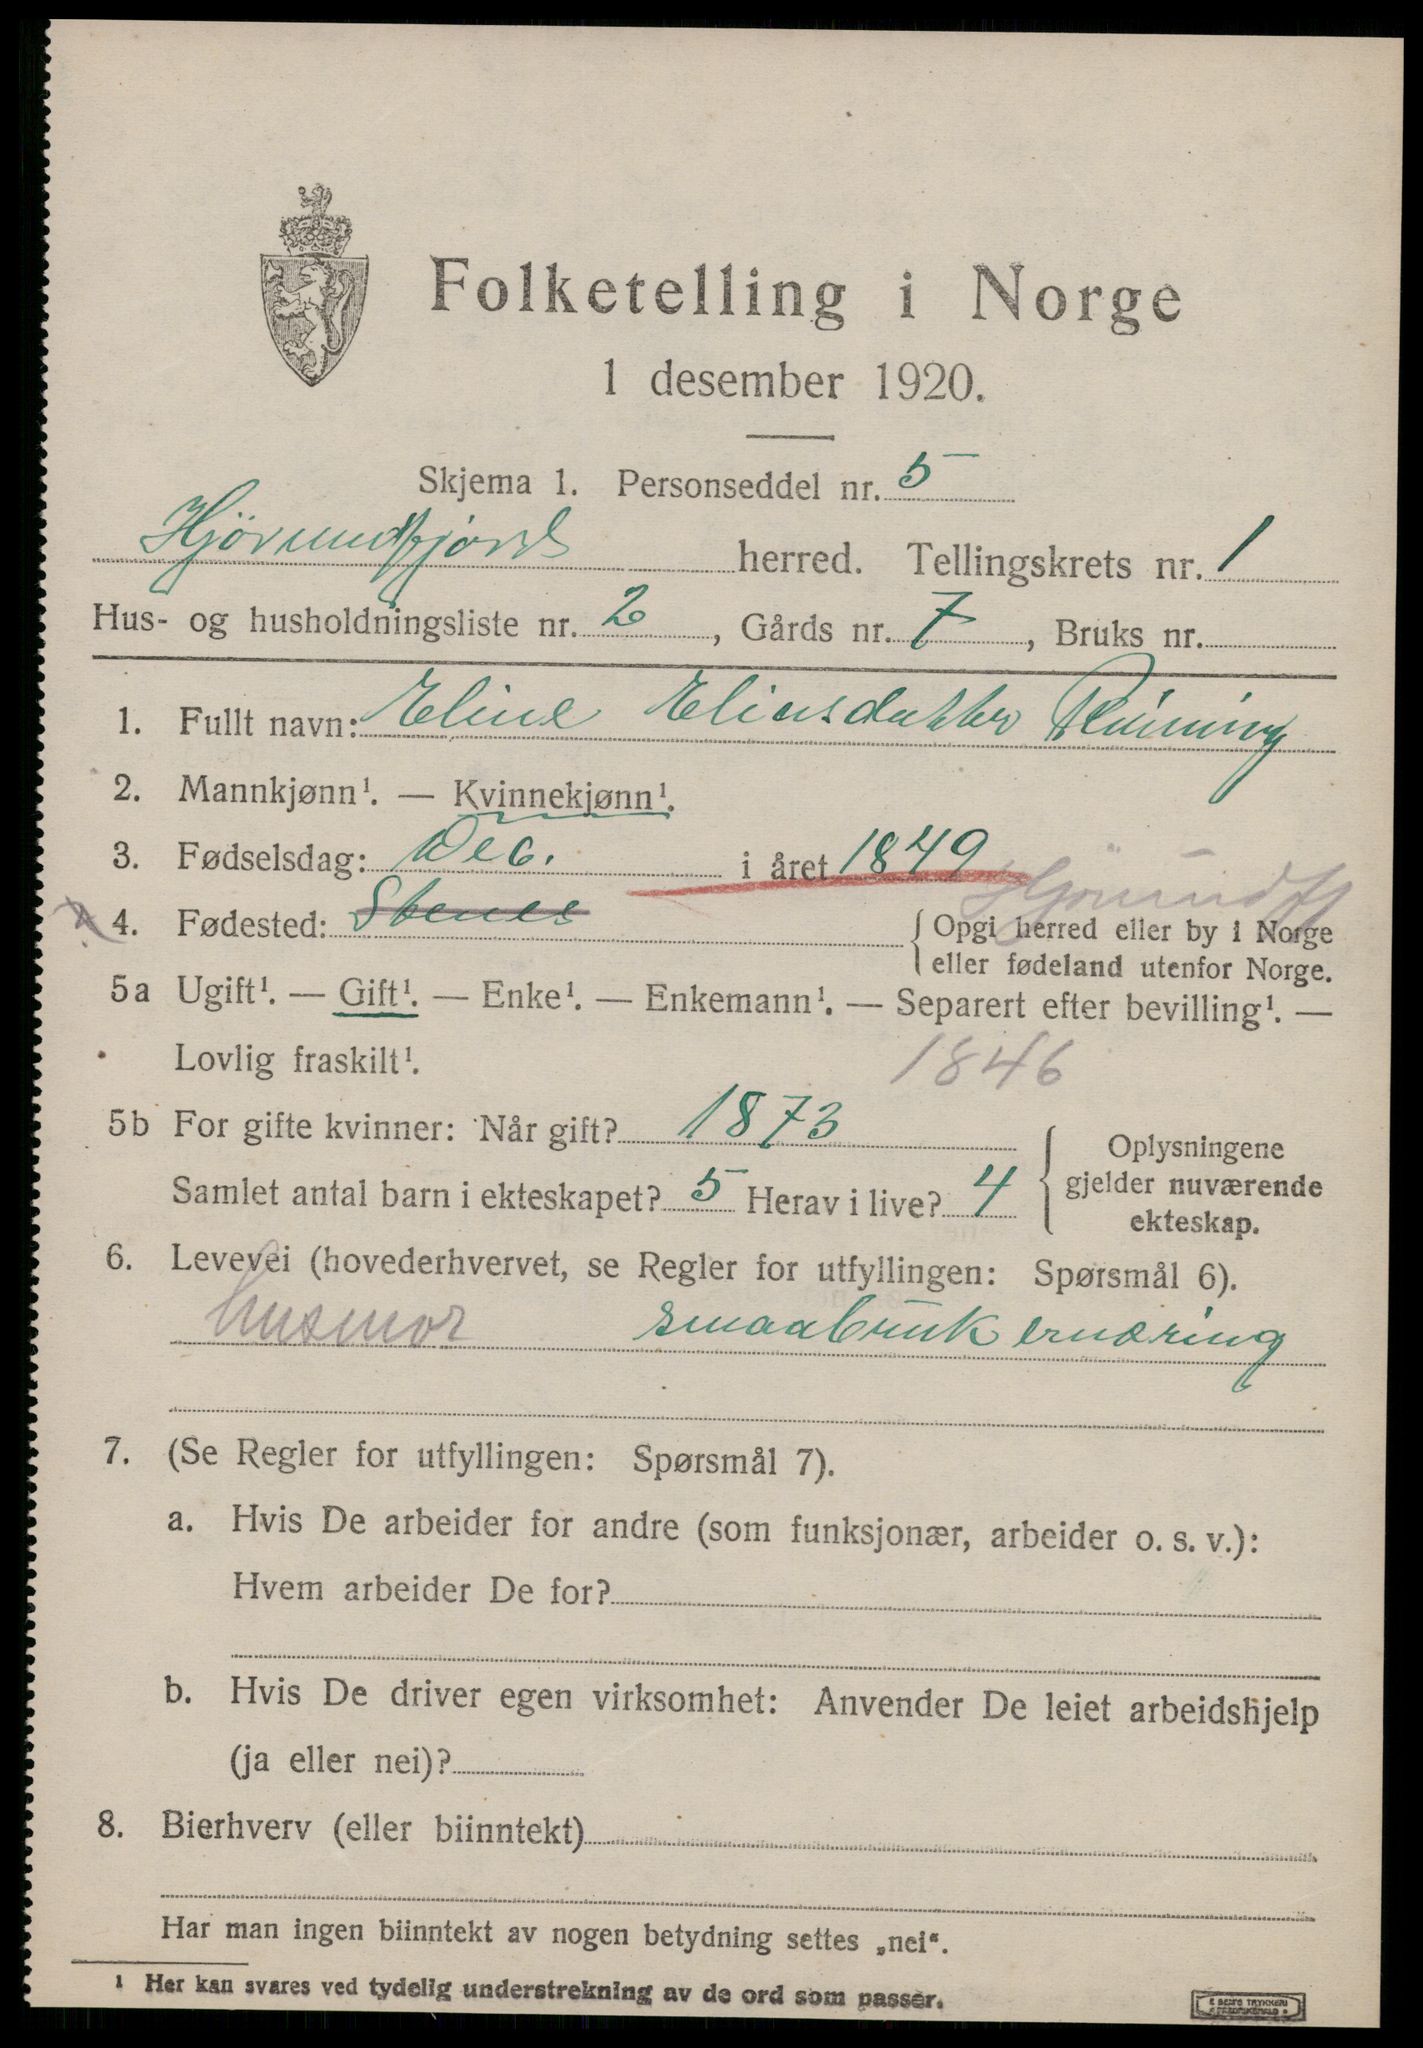 Folketelling i Norge
1 desember 1920.
Skjema 1. Personseddel nr. 5
Hjörundfjord herred. Tellingskrets nr. 1
Hus- og husholdningsliste nr. 2, Gårds nr. 7, Bruks nr.
1. Fullt navn: Eline Eliasdatter
2. Mannkjønn¹. — Kvinnekjønn¹.
3. Fødselsdag: Dec. i året 1849
Hjörundfj
4. Fødested: Stenes { Opgi herred eller by i Norge
eller fødeland utenfor Norge.
5a Ugift¹. — Gift¹. — Enke¹. — Enkemann¹. — Separert efter bevilling¹. —
Lovlig fraskilt¹. 1846
5b For gifte kvinner: Når gift? 1873
Samlet antal barn i ekteskapet? 5 Herav i live? 4
{ Oplysningene
gjelder nuværende
ekteskap.
6. Levevei (hovederhvervet, se Regler for utfyllingen: Spørsmål 6).
husmor smaabruk ernæring
7. (Se Regler for utfyllingen: Spørsmål 7).
a. Hvis De arbeider for andre (som funksjonær, arbeider o. s. v.):
Hvem arbeider De for?
b. Hvis De driver egen virksomhet: Anvender De leiet arbeidshjelp
(ja eller nei)?
8. Bierhverv (eller biinntekt)
Har man ingen biinntekt av nogen betydning settes „nei“.
¹ Her kan svares ved tydelig understrekning av de ord som passer.